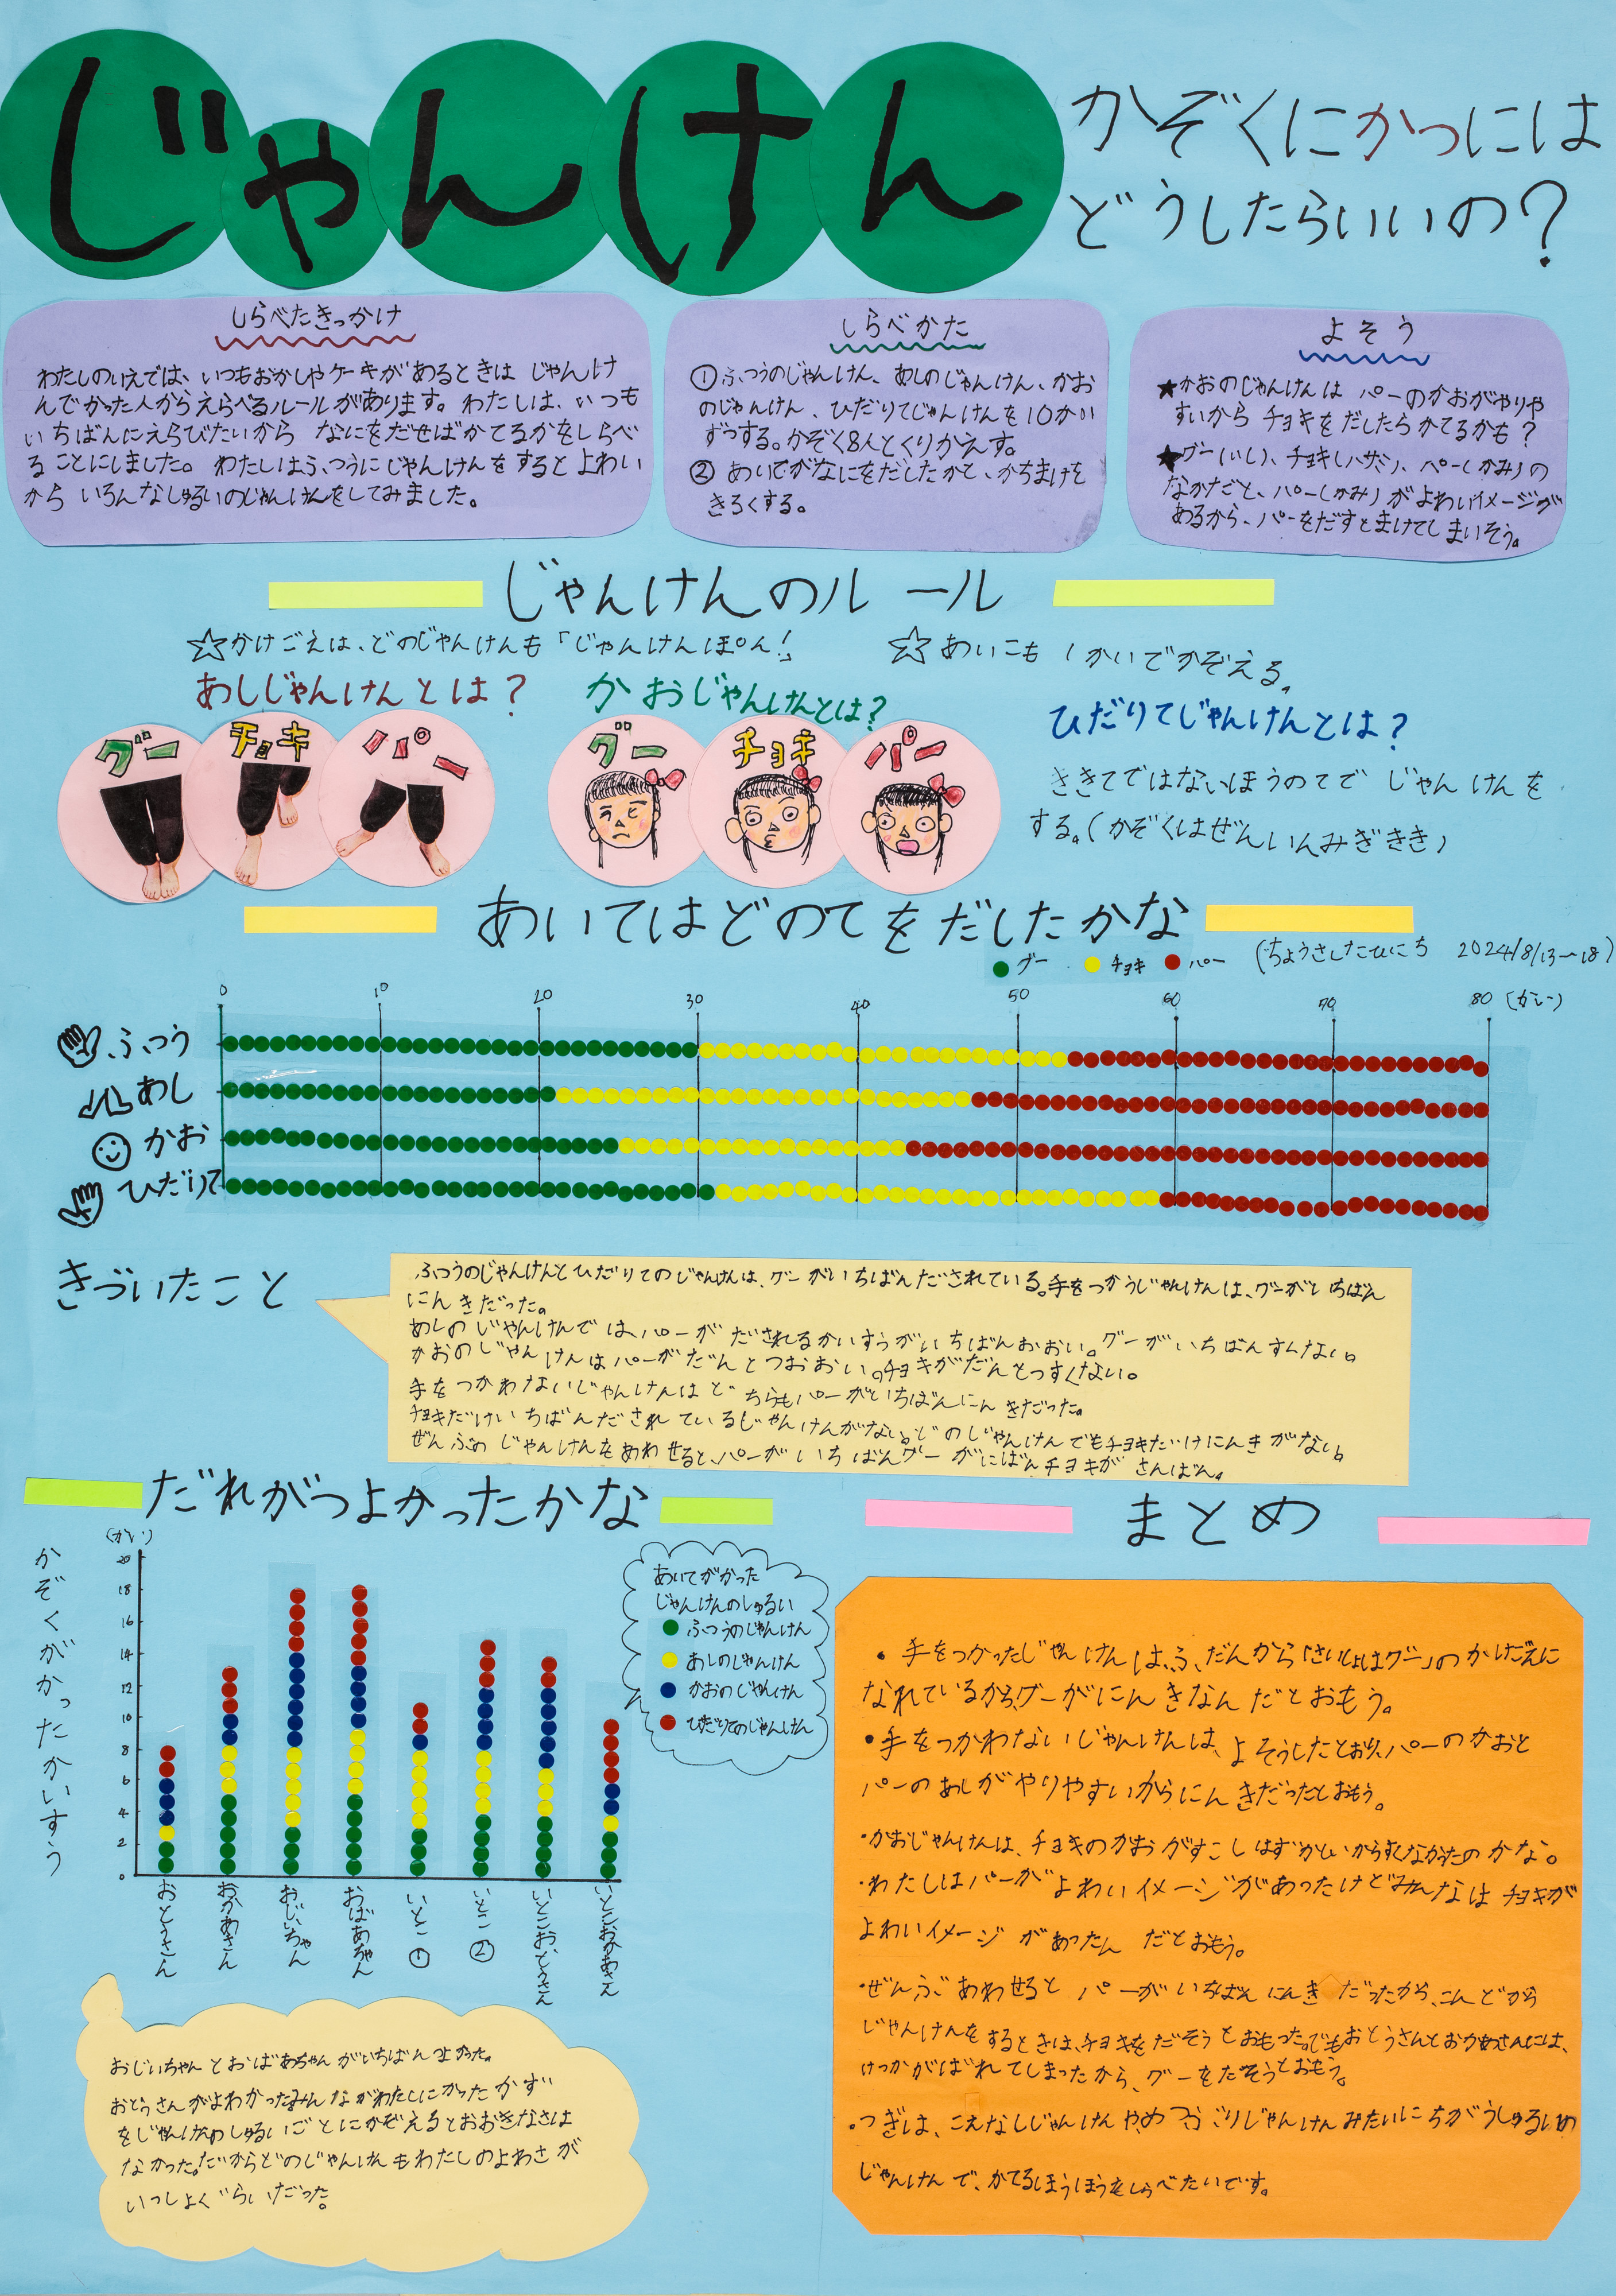 じゃんけん
かぞくにかつには
どうしたらいいの?
しらべたきっかけ
わたしのいえでは、いつもおかしやケーキがあるときは じゃんけ
んでかった人からえらべるルールがあります。わたしは、いつも
いちばんにえらびたいから なにをだせばかてるかをしらべ
ることにしました。 わたしはふつうにじゃんけんをするとよわい
から いろんなしゅるいのじゃんけんをしてみました。
しらべかた
①ふつうのじゃんけん、あしのじゃんけん、かお
のじゃんけん、ひだりてじゃんけんを10かい
ずつする。かぞく8人とくりかえす。
② あいてがなにをだしたかと、かちまけを
きろくする。
よそう
★かおのじゃんけんは パーのかおがやりや
すいから チョキをだしたらかてるかも?
★グー(いし)、チョキ(ハサミ)、パー(かみ)の
なかだと、パー(かみ)がよわいイメージが
あるから、パーをだすとまけてしまいそう。
じゃんけんのルール
☆かけごえは、どのじゃんけんも「じゃんけんぽん!」
☆あいこも1かいでかぞえる。
あしじゃんけんとは?
グー
チョキ
パー
かおじゃんけんとは?
グー
チョキ
パー
ひだりてじゃんけんとは?
ききてではないほうのてで じゃんけんを
する。(かぞくはぜんいんみぎきき)
あいてはどのてをだしたかな
グー チョキ パー (ちょうさしたひにち 2024/8/13〜18)
0 10 20 30 40 50 60 70 80 (かい)
ふつう
あし
かお
ひだりて
きづいたこと
ふつうのじゃんけんとひだりてのじゃんけんは、グーがいちばんだされている。手をつかうじゃんけんは、グーがいちばん
にんきだった。
あしのじゃんけんでは、パーがだされるかいすうがいちばんおおい。グーがいちばんすくない。
かおのじゃんけんはパーがだんとつおおい。チョキがだんとつすくない。
手をつかわないじゃんけんはどちらもパーがいちばんにんきだった。
チョキだけいちばんだされているじゃんけんがない。どのじゃんけんでもチョキだけにんきがない。
ぜんぶのじゃんけんをあわせると、パーがいちばんグーがにばんチョキがさんばん。
だれがつよかったかな
かぞくがかったかいすう
(かい)
20
18
16
14
12
10
8
6
4
2
0
おとうさん
おかあさん
おじいちゃん
おばあちゃん
いとこ①
いとこ②
いとこおとうさん
いとこおかあさん
あいてがかった
じゃんけんのしゅるい
ふつうのじゃんけん
あしのじゃんけん
かおのじゃんけん
ひだりてのじゃんけん
おじいちゃんとおばあちゃんがいちばんつよかった。
おとうさんがよわかった。みんながわたしにかったかず
をじゃんけんのしゅるいごとにかぞえるとおおきなさは
なかった。だからどのじゃんけんもわたしのよわさが
いっしょぐらいだった。
まとめ
・手をつかったじゃんけんは、ふだんから「さいしょはグー」のかけごえに
なれているから、グーがにんきなんだとおもう。
・手をつかわないじゃんけんは、よそうしたとおり、パーのかおと
パーのあしがやりやすいからにんきだったとおもう。
・かおじゃんけんは、チョキのかおがすこしはずかしいからすくなかったのかな。
・わたしはパーがよわいイメージがあったけどみんなはチョキが
よわいイメージがあったんだとおもう。
・ぜんぶあわせるとパーがいちばんにんきだったから、こんどから
じゃんけんをするときは、チョキをだそうとおもった。でもおとうさんとおかあさんには、
けっかがばれてしまったから、グーをだそうとおもう。
・つぎは、こえなしじゃんけんや、めつぶりじゃんけんみたいにちがうしゅるいの
じゃんけんで、かてるほうほうをしらべたいです。